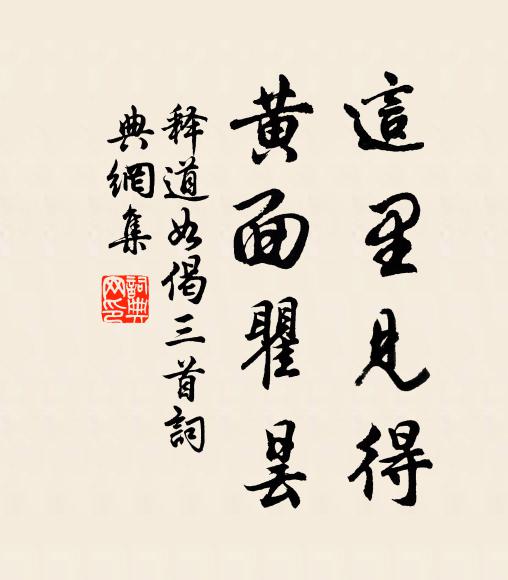 這里見得
黄面瞿昙
释道如偈三首詞
典網集
詞典
网印